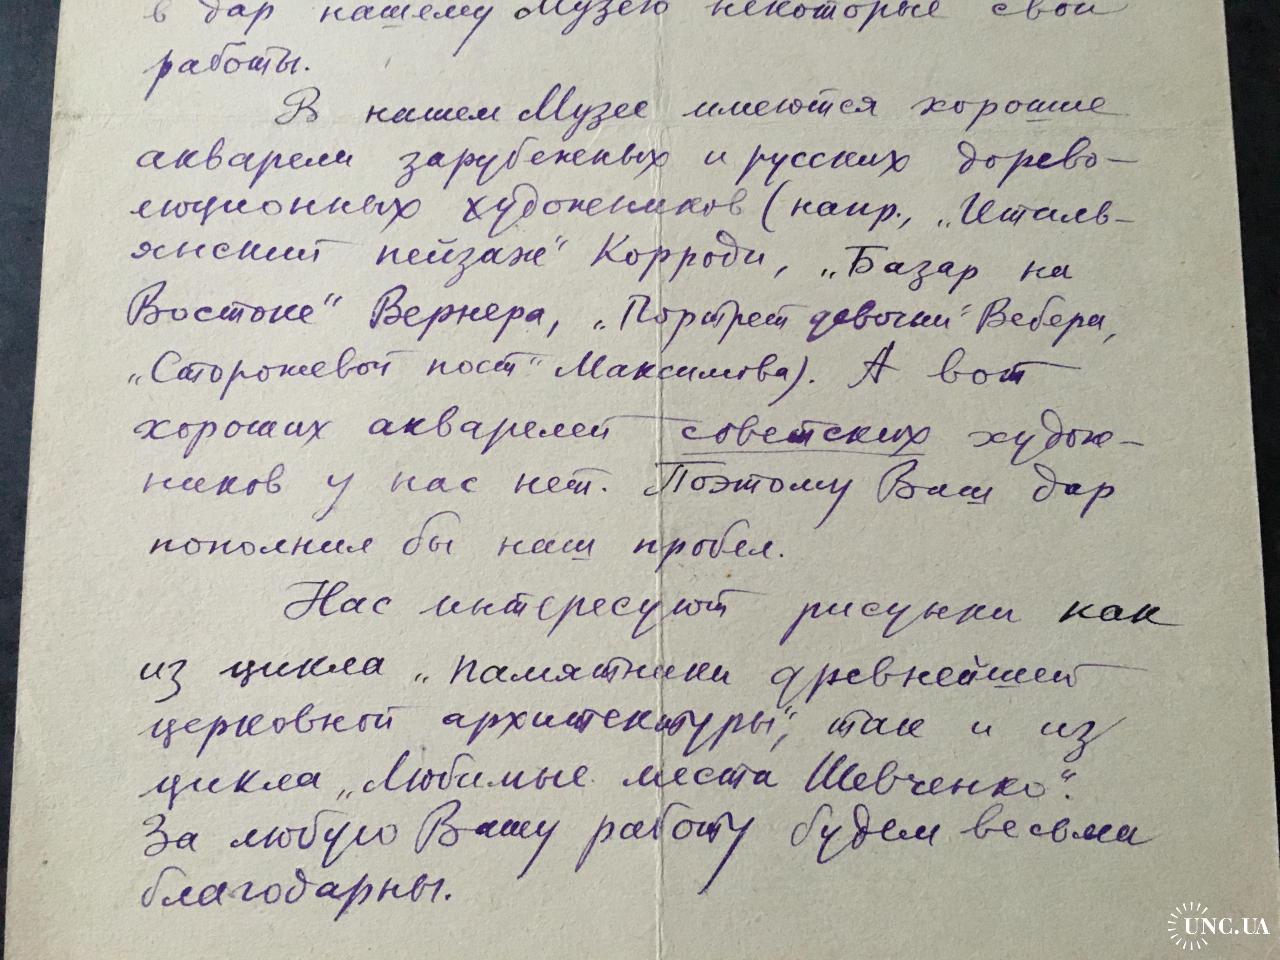 в дар нашему Музею некоторые свои
работы.
В нашем Музее имеются хорошие
акварели зарубежных и русских дорево-
люционных художников (напр., „Италь-
янский пейзаж" Корроди, „Базар на
Востоке" Вернера, „Портрет девочки" Вебера,
„Сторожевой пост" Максимова). А вот
хороших акварелей советских худож-
ников у нас нет. Поэтому Ваш дар
пополнил бы наш пробел.
Нас интересуют рисунки как
из цикла „Памятники древнейшей
церковной архитектуры", так и из
цикла „Любимые места Шевченко".
За любую Вашу работу будем весьма
благодарны.
UNC.UA